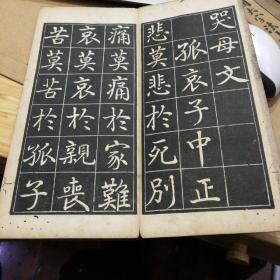 哭母文
孤哀子中正
悲莫悲於死別
痛莫痛於家難
哀莫哀於親喪
苦莫苦於孤子